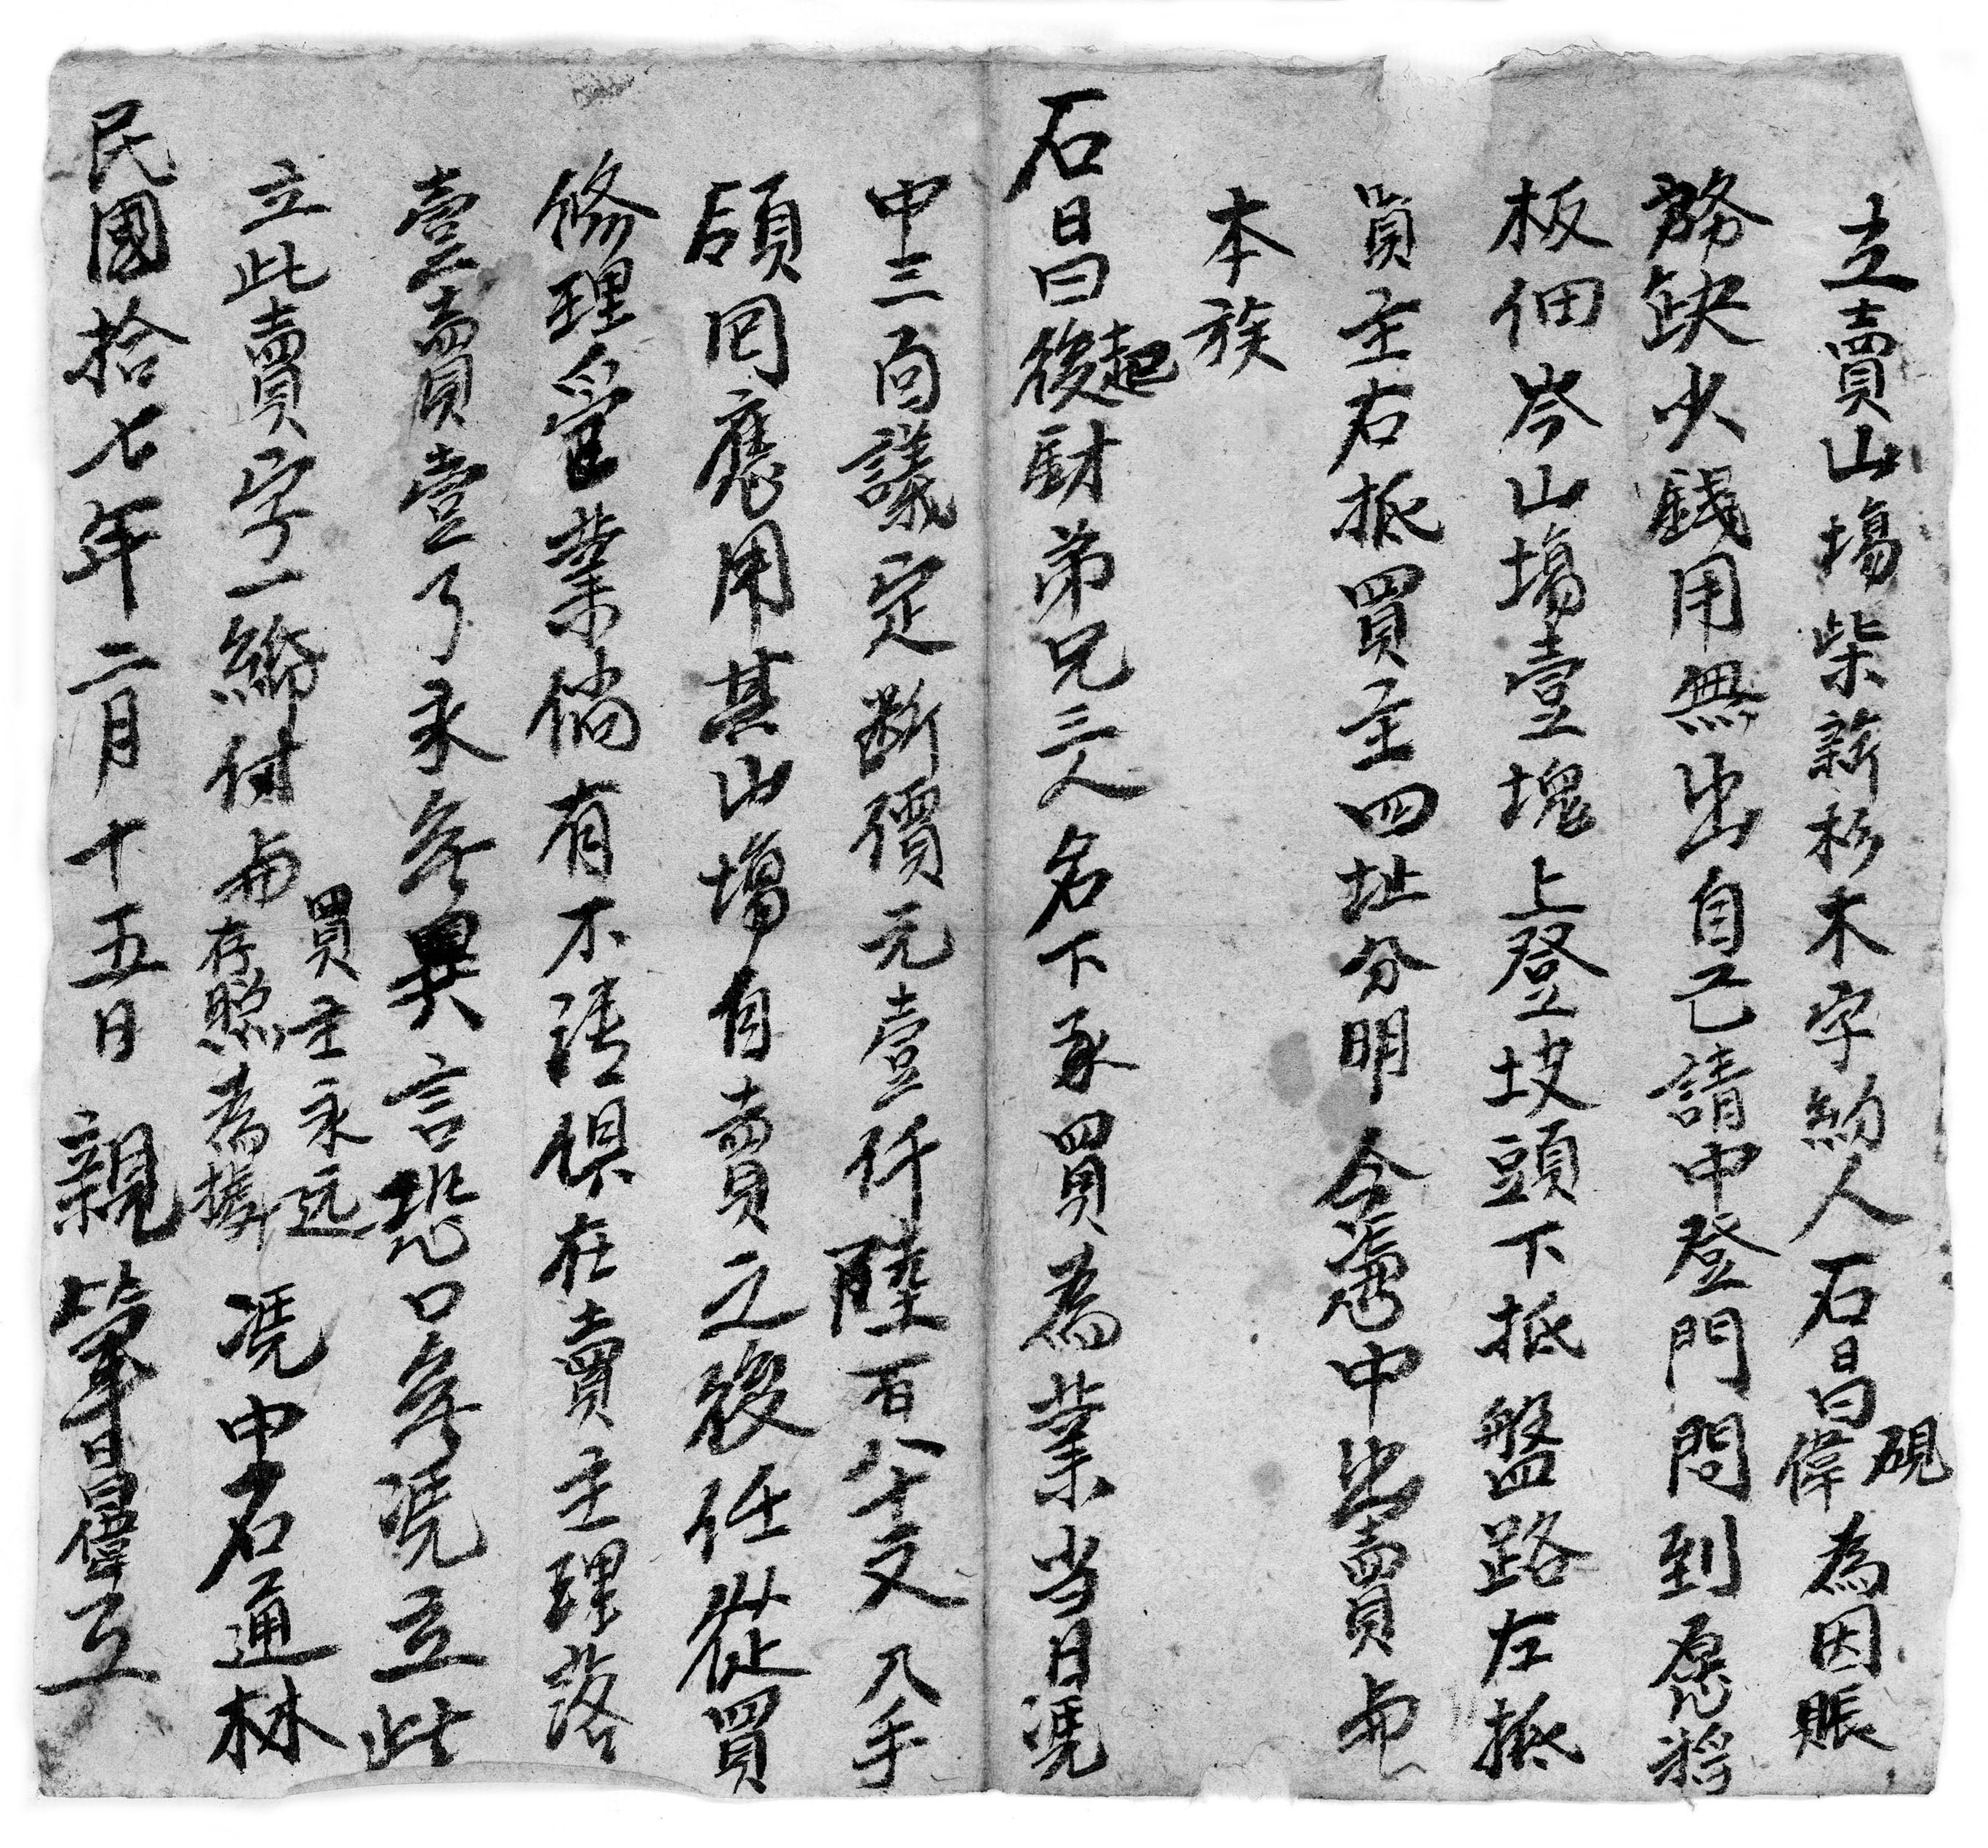 立賣山塲柴薪杉木字約人石昌硯偉為因賬
務缺少錢用無出自己請中登門問到愿將
板佃岑山塲壹塊上登坡頭下抵盤路左抵
買主右抵買主四址分明今憑中出賣與
本族
石昌後起財弟兄三人名下承買為業当日凴
中三面議定断價元壹仟陸百八十文入手
領回應用其山塲自賣之後任從買
修理管業倘有不清俱在賣主理落
壹賣壹了永無異言恐口無凴立此
立此賣字一紙付與買主永远存照為據 凴中石通林
民國拾七年二月十五日親筆昌偉立